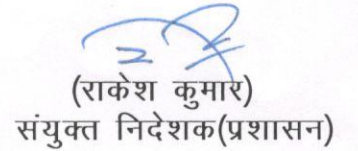 (राकेश कुमार)
संयुक्त निदेशक(प्रशासन)